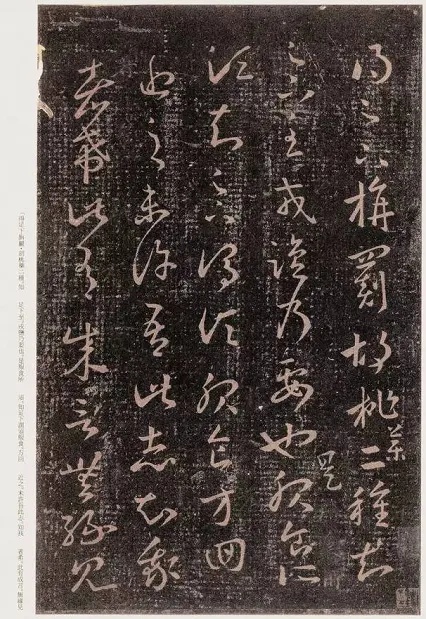 得足下旃罽胡桃藥二種知
足下至戎鹽乃要也是服食所
須知足下謂須服食方回
近之未許吾此志知我
者希此有成言無緣見
「得足下旃罽、胡桃藥二種、知 足下至、戎鹽乃要也、是服食所 須、知足下謂須服食、方回 近之、未許吾此志、知我 者希、此有成言、無緣見